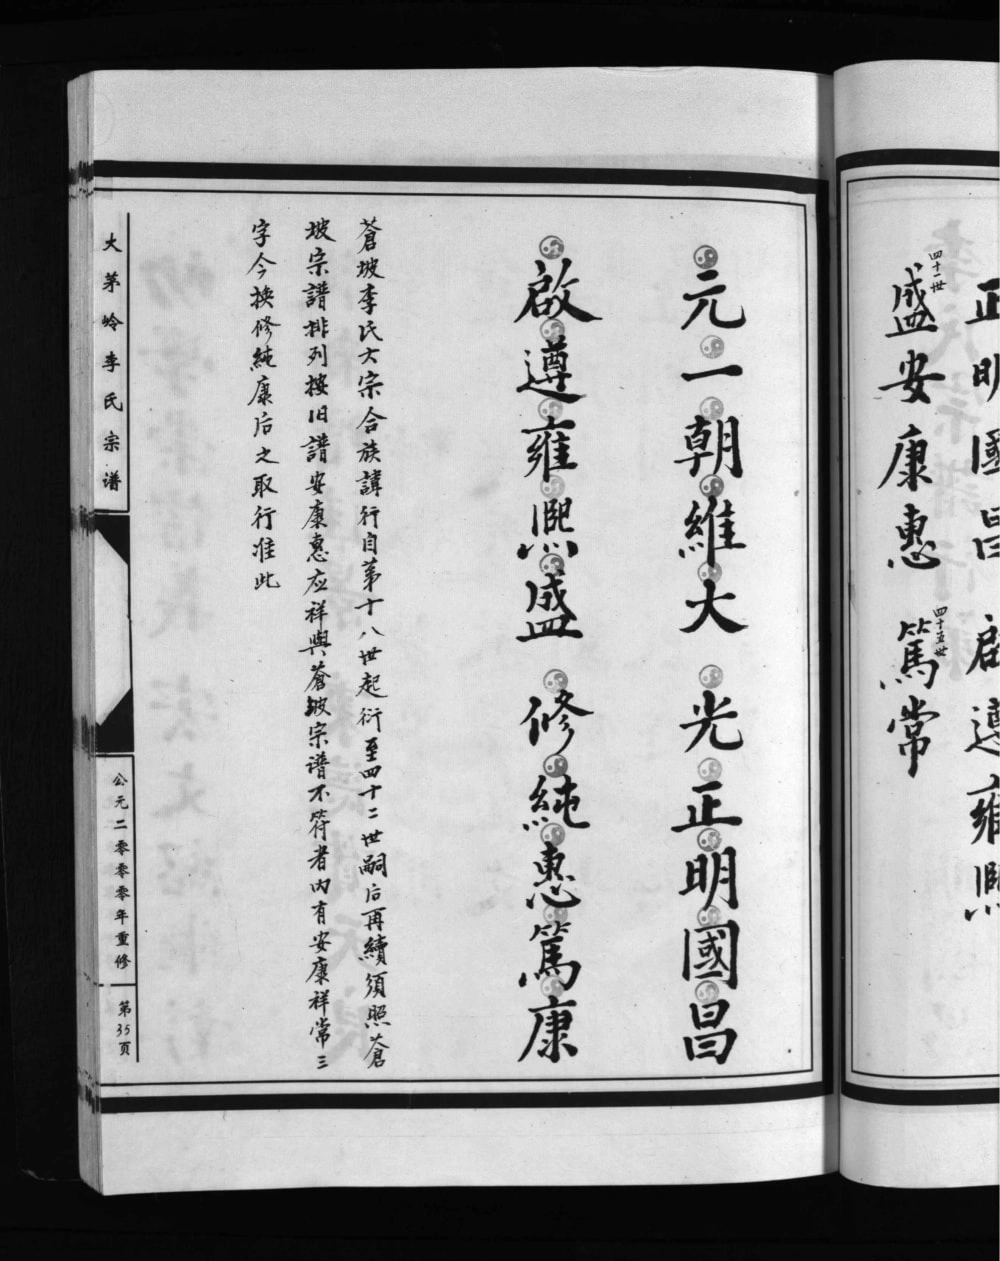 正明國昌 啟遵雍熙
四十一世
盛安康惠
四十五世
篤常
元一朝維大 光正明國昌
啟遵雍熙盛 修純惠篤康
蒼坡李氏大宗合族諱行自第十八世起衍至四十二世嗣后再續須照蒼
坡宗譜排列按旧譜安康惠应祥與蒼坡宗谱不符者内有安康祥常三
字今换修純康后之取行准此
大茅岭李氏宗谱
公元二零零零年重修
第35页